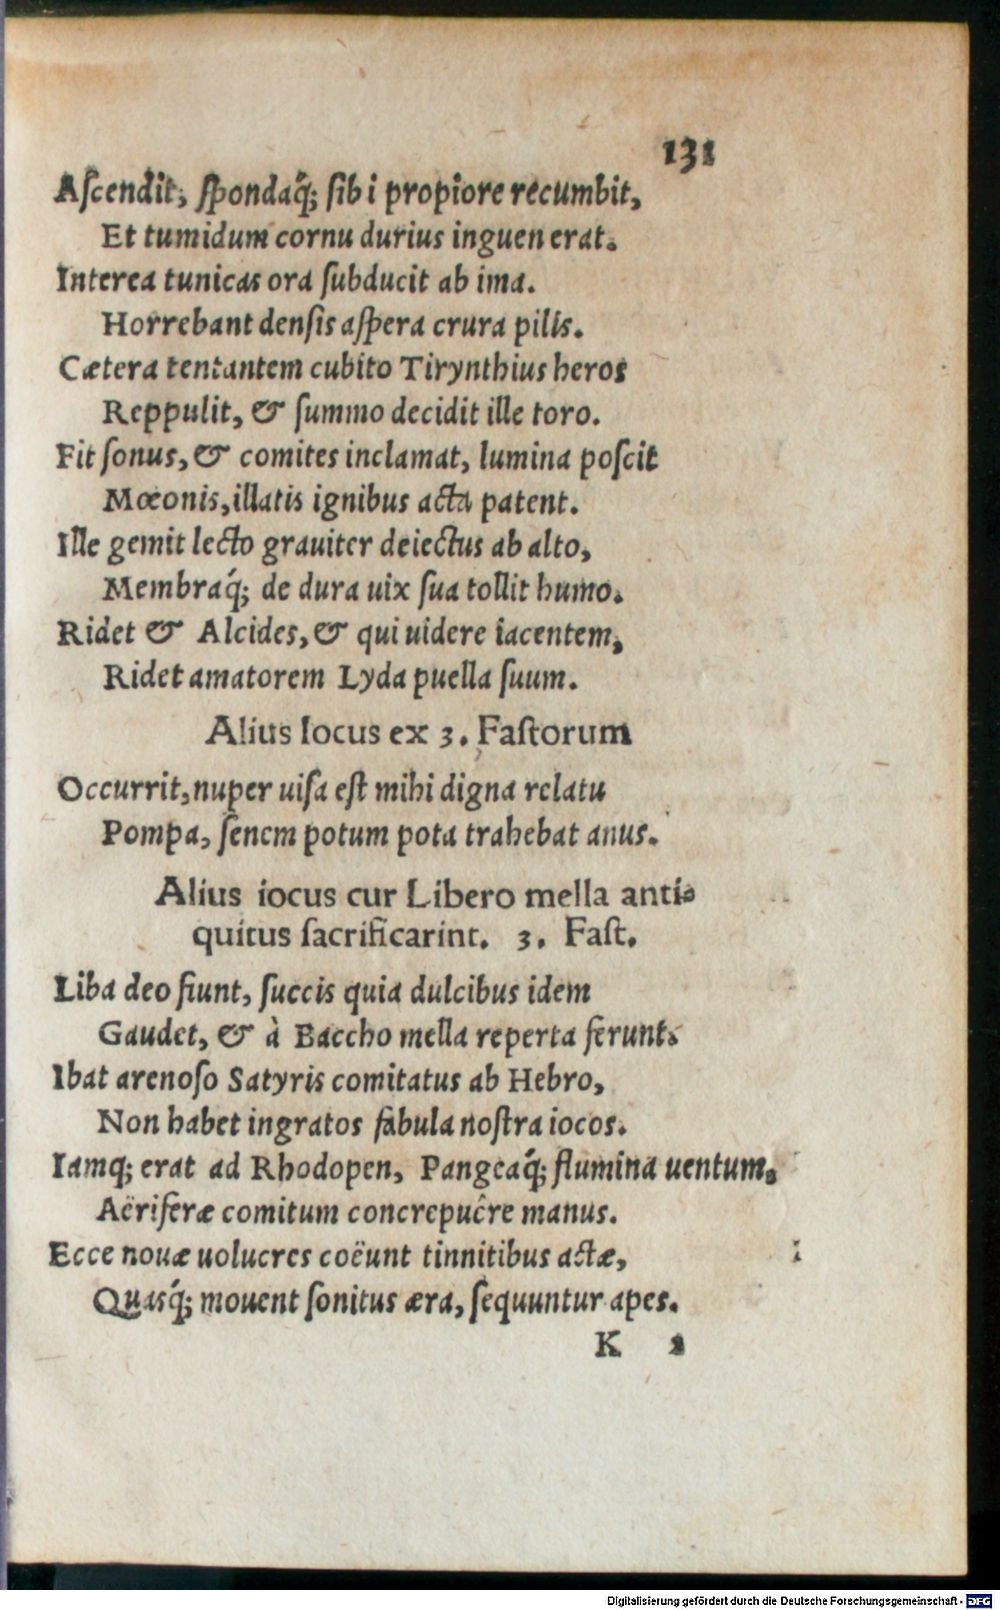 131
Aſcendit, ſpondaq́; ſibi propiore recumbit,
Et tumidum cornu durius inguen erat.
Interea tunicas ora ſubducit ab ima.
Horrebant denſis aſpera crura pilis.
Cætera tentantem cubito Tirynthius heros
Reppulit, & ſummo decidit ille toro.
Fit ſonus, & comites inclamat, lumina poſcit
Mœonis, illatis ignibus acta patent.
Ille gemit lecto grauiter deiectus ab alto,
Membraq́; de dura uix ſua tollit humo.
Ridet & Alcides, & qui uidere iacentem,
Ridet amatorem Lyda puella ſuum.
Alius locus ex 3. Faſtorum
Occurrit, nuper uiſa eſt mihi digna relatu
Pompa, ſenem potum pota trahebat anus.
Alius iocus cur Libero mella anti-
quitus ſacrificarint. 3. Faſt.
Liba deo fiunt, ſuccis quia dulcibus idem
Gaudet, & à Baccho mella reperta ferunt.
Ibat arenoſo Satyris comitatus ab Hebro,
Non habet ingratos fabula noſtra iocos.
Iamq; erat ad Rhodopen, Pangeaq́; flumina uentum,
Aëriferæ comitum concrepuêre manus.
Ecce nouæ uolucres coëunt tinnitibus actæ,
Quasq́; mouent ſonitus æra, ſequuntur apes.
K 2
Digitalisierung gefördert durch die Deutsche Forschungsgemeinschaft - DFG